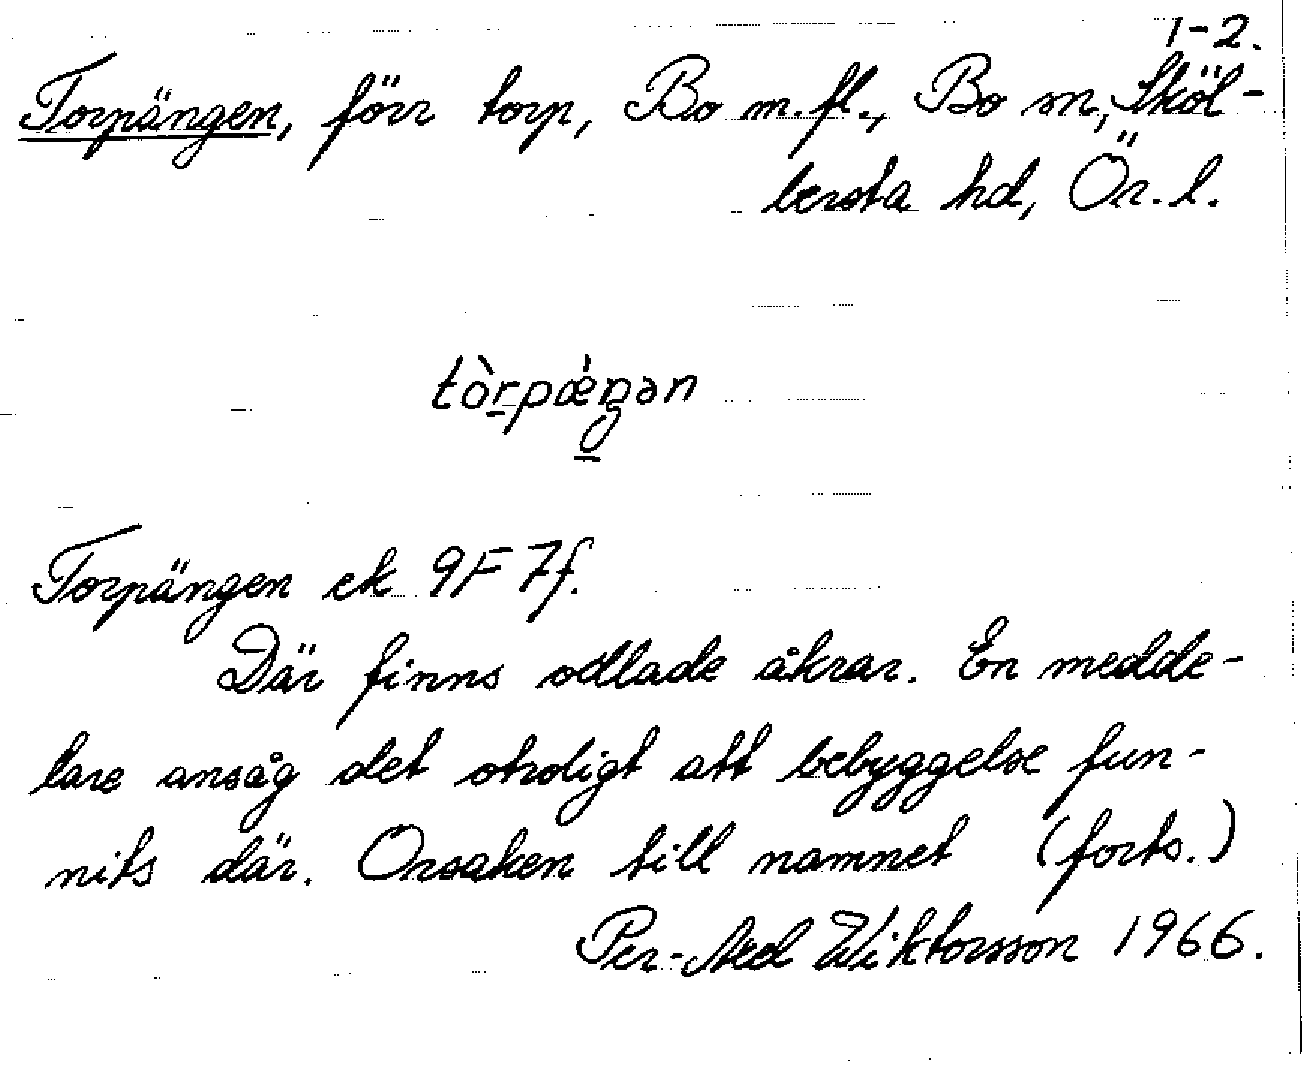 1-2.
Torpängen, förr torp, Bo m.fl., Bo sn, Sköl-
lersta hd, Ör. l.
tòrpæ´ŋən
Torpängen ek 9F 7f.
Där finns odlade åkrar. En medde-
lare ansåg det otroligt att bebyggelse fun-
nits där. Orsaken till namnet (forts.)
Per-Axel Wiktorsson 1966.